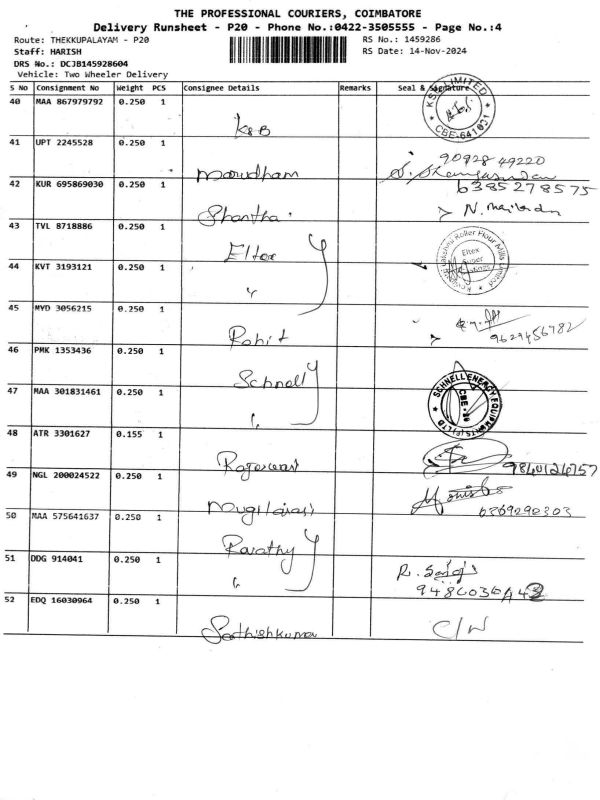 THE PROFESSIONAL COURIERS, COIMBATORE
Delivery Runsheet - P20 - Phone No.:0422-3505555 - Page No.:4
Route: THEKKUPALAYAM - P20 RS No.: 1459286
Staff: HARISH RS Date: 14-Nov-2024
DRS No.: DCJB145928604
Vehicle: Two Wheeler Delivery
S No Consignment No Weight PCS Consignee Details Remarks Seal & Signature
40 MAA 867979792 0.250 1 KSB LIMITED
K&B CBE-641031
41 UPT 2245528 0.250 1 90928 49220
Marudham
42 KUR 695869030 0.250 1 6385278575
Shantha
43 TVL 8718886 0.250 1
Eltex Lakshmi Roller Flour Mills Limited
44 KVT 3193121 0.250 1 Eltex Super
"
45 MYD 3056215 0.250 1 9629456782
Rohit
46 PMK 1353436 0.250 1
Schnell SCHNELL ENERGY EQUIPMENTS (P) LTD
47 MAA 301831461 0.250 1 CBE
"
48 ATR 3301627 0.155 1
Rajeswari
49 NGL 200024522 0.250 1
6369290303
50 MAA 575641637 0.250 1
Revathy
51 DDG 914041 0.250 1
"
52 EDQ 16030964 0.250 1 C/N
Sathishkumar